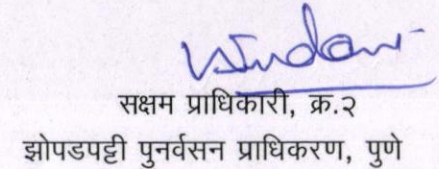 सक्षम प्राधिकारी, क्र.२
झोपडपट्टी पुनर्वसन प्राधिकरण, पुणे